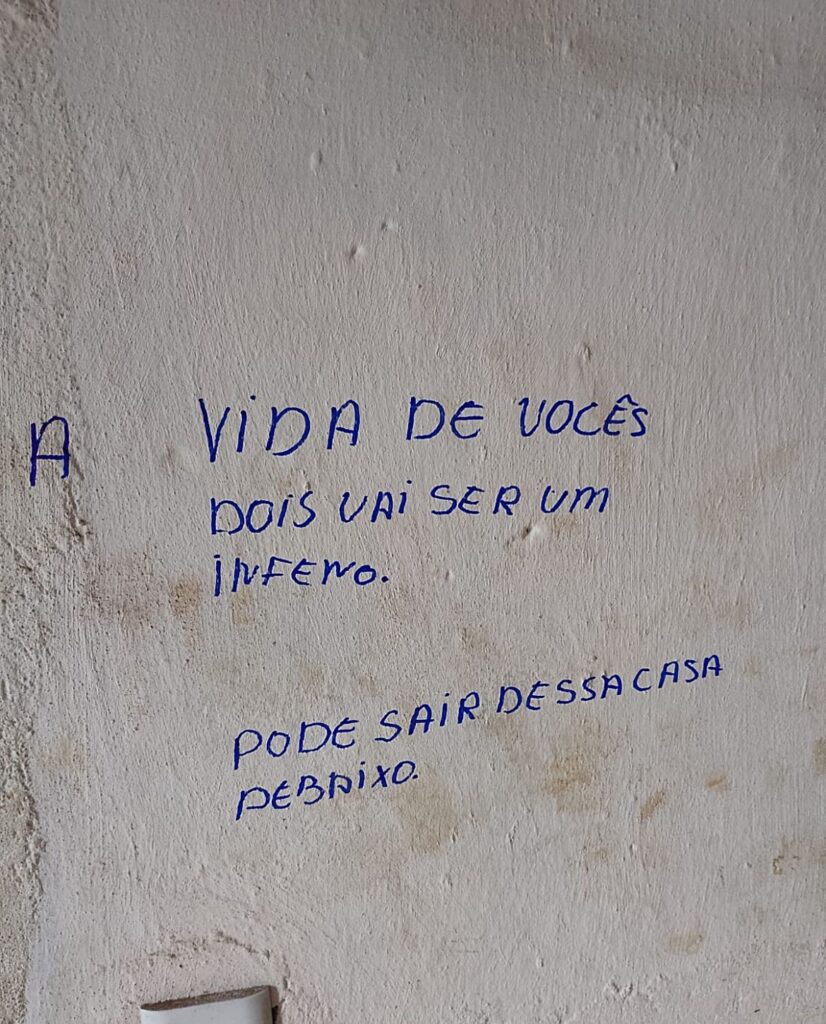 A VIDA DE VOCÊS
DOIS VAI SER UM
INFENO.
PODE SAIR DESSA CASA
DEBAIXO.